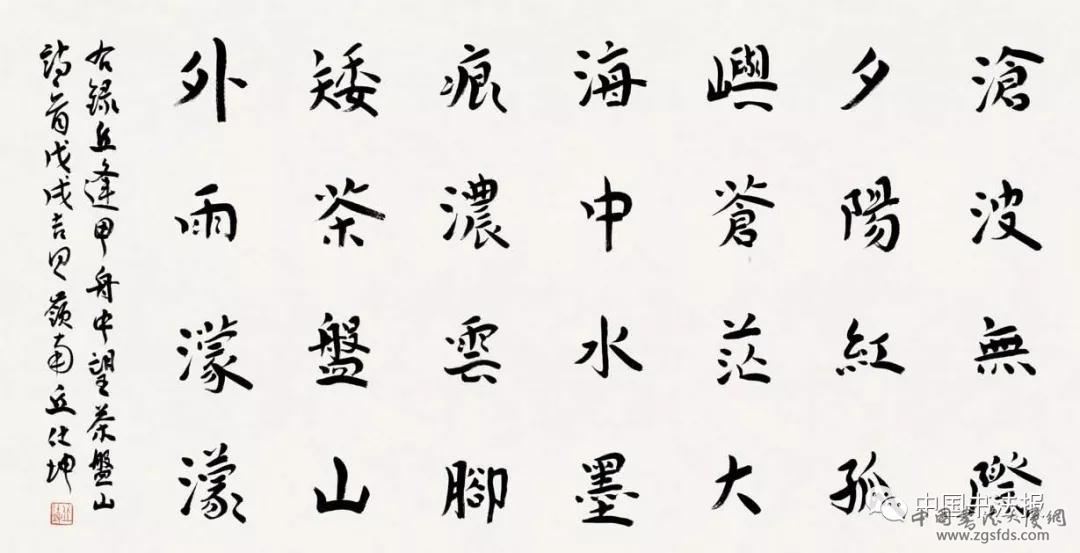 滄波無際
夕陽紅孤
嶼蒼茫大
海中水墨
痕濃雲腳
矮茶盤山
外雨濛濛
右錄丘逢甲舟中望茶盤山
詩首戊戌吉月嶺南丘仕坤
中国书法报
中国書法大廈網
www.zgsfds.com